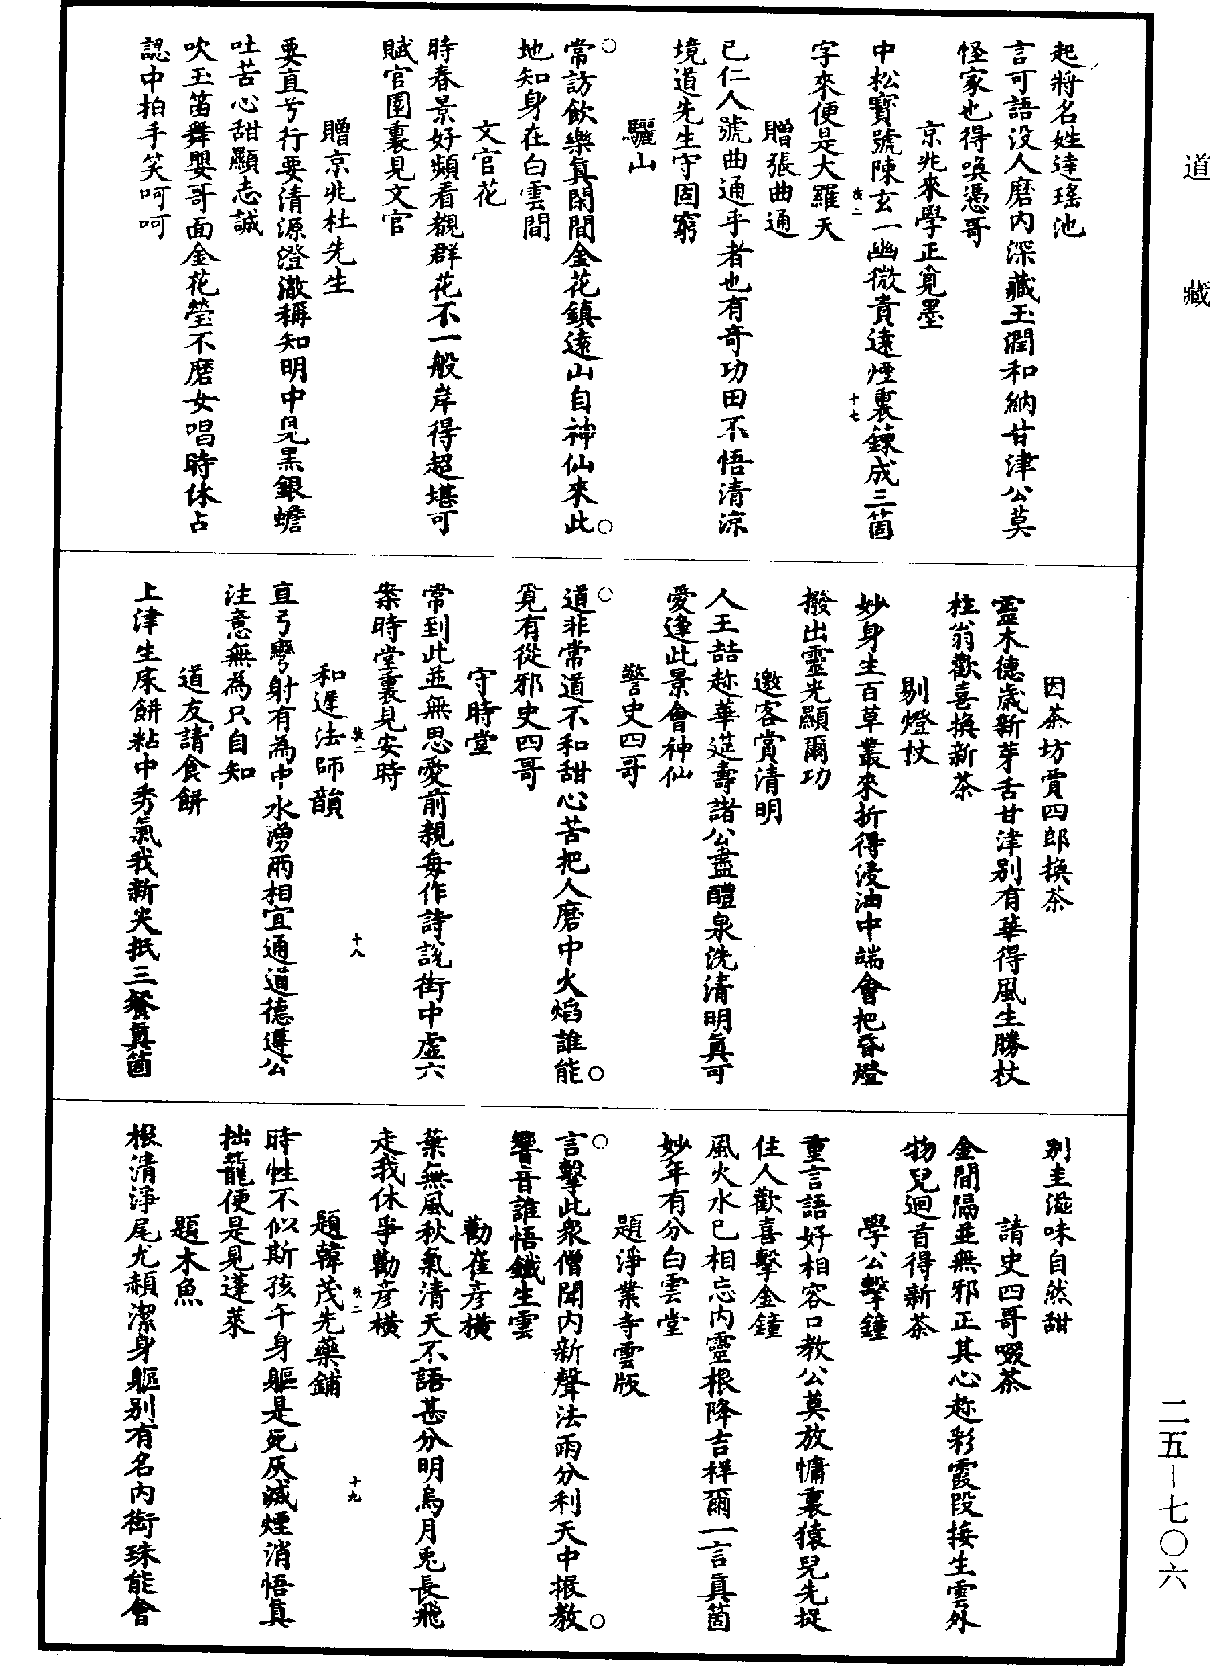 道藏
起將名姓達瑤池
言可語沒人磨內深藏玉潤和納甘津公莫
怪家也得喚憑哥
京兆來學正覓墨
中松寶號陳玄一幽微貴遠煙裏鍊成三箇
字來便是大羅天
贈張曲通
已仁人號曲通乎者也有奇功田不悟清涼
境道先生守固窮
驪山
常訪飲樂真閑間金花鎮遠山自神仙來此
地知身在白雲間
文官花
時春景好頻看覩群花不一般岸得超堪可
賦官園裏見文官
贈京兆杜先生
要直兮行要清源澄澈稱知明中見黑銀蟾
吐苦心甜顯志誠
吹玉笛舞嬰哥面金花瑩不磨女唱時休占
認中拍手笑呵呵
因茶坊賈四郎換茶
靈木德歲新芽舌甘津別有華得風生勝杖
柱翁歡喜換新茶
剔燈杖
妙身生百草叢來折得浸油中端會把昏燈
撥出靈光顯爾功
邀客賞清明
人王喆趂華筵壽諸公盡醴泉洗清明真可
愛逢此景會神仙
警史四哥
道非常道不和甜心苦把人磨中火焰誰能
覓有從邪史四哥
守時堂
常到此並無思愛前親每作詩說街中虛六
案時堂裏見安時
和遲法師韻
直弓彎射有為中水湧兩相宜通道德遵公
注意無為只自知
道友請食餅
上津生床餅粘中秀氣我新尖抵三餐真箇
別圭滋味自然甜
請史四哥啜茶
金間隔並無邪正其心趂彩霞段接生雲外
物兒迴首得新茶
學公擊鐘
重言語好相容口教公莫放慵裏猿兒先捉
住人歡喜擊金鐘
風火水已相忘內靈根降吉祥爾一言真箇
妙年有分白雲堂
題淨業寺雲版
言擊此衆僧聞內新聲法雨分利天中振教
響音誰悟鐵生雲
勸崔彥橫
葉無風秋氣清天不語甚分明烏月兔長飛
走我休爭勸彥橫
題韓茂先藥鋪
時性不似斯孩午身軀是死灰滅煙消悟真
拙籠便是見蓬萊
題木魚
根清淨尾尤頳潔身軀別有名內銜珠能會
十七
十八
十九
二五—七〇六